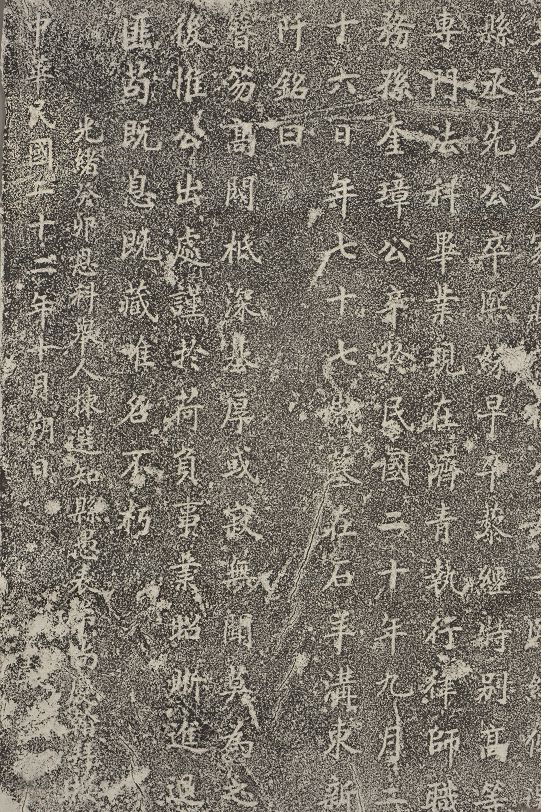 縣丞先公卒熙緣早卒藜經特别高等
專門法科畢業現在濟青執行律師職
務孫奎璋公卒於民國二十年九月三
十六日年七十七歲墓在石羊溝東新
阡銘曰
皆笏高閎柢深基厚或寂無聞莫為之
後惟公出處謹於荷負事業昭晰進退
匪茍既息既藏惟名不朽
光緒癸卯恩科舉人揀選知縣愚表
中華民國二十二年十月朔日